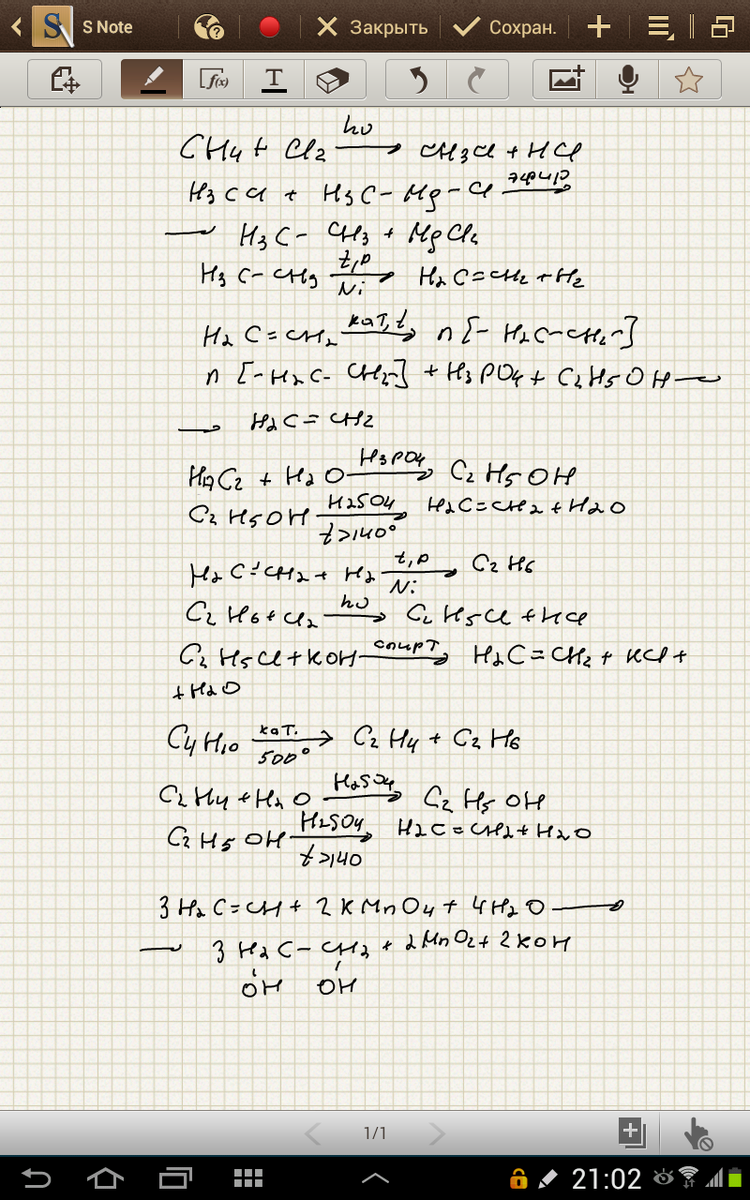 S Note
Закрыть
Сохран.
f(x)
T
CH4 + Cl2 hν → CH3Cl + HCl
H3CCl + H3C - Mg - Cl эфир →
→ H3C - CH3 + MgCl2
H3C - CH3 t,p Ni → H2C=CH2 + H2
H2C=CH2 кат, t → n[-H2C-CH2-]
n[-H2C-CH2-] + H3PO4 + C2H5OH →
→ H2C=CH2
+ H2O H3PO4 → C2H5OH
C2H5OH H2SO4 t>140° → H2C=CH2 + H2O
H2C=CH2 + H2 t,p Ni → C2H6
C2H6 + Cl2 hν → C2H5Cl + HCl
C2H5Cl + KOH спирт → H2C=CH2 + KCl +
+ H2O
C4H10 кат. 500° → C2H4 + C2H6
C2H4 + H2O H2SO4 → C2H5OH
C2H5OH H2SO4 t>140 → H2C=CH2 + H2O
3H2C=CH + 2KMnO4 + 4H2O →
→ 3H2C - CH2 + 2MnO2 + 2KOH
OH OH
1/1
21:02